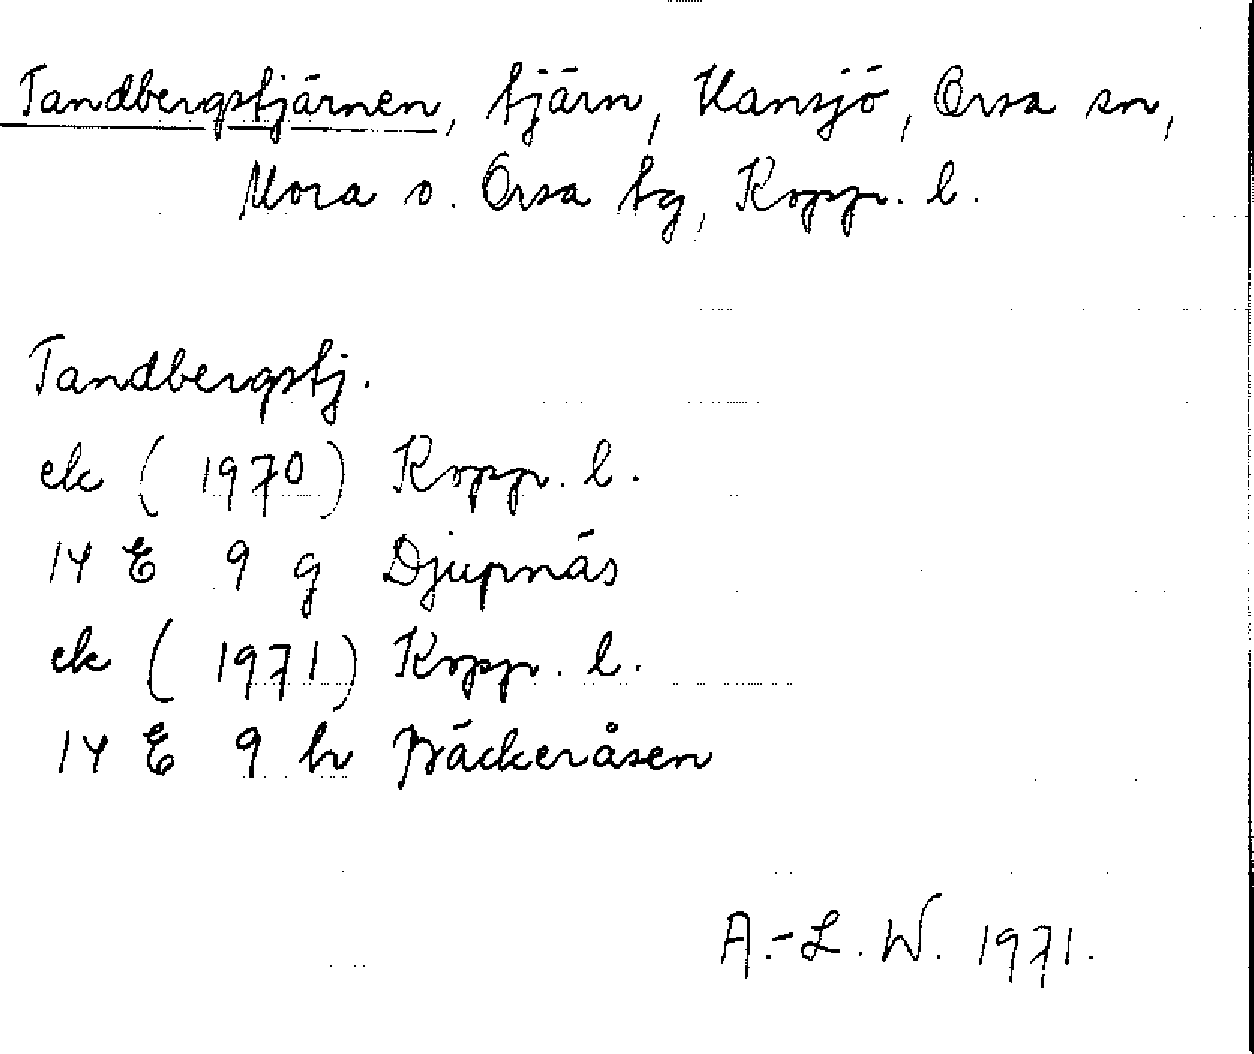 Tandbergstjärnen, tjärn, Hansjö, Orsa sn,
Mora o. Orsa tg, Kopp. l.
Tandbergstj.
ek (1970) Kopp. l.
14 E 9 g Djupnäs
ek (1971) Kopp. l.
14 E 9 h Bäckeråsen
A.-L. W. 1971.